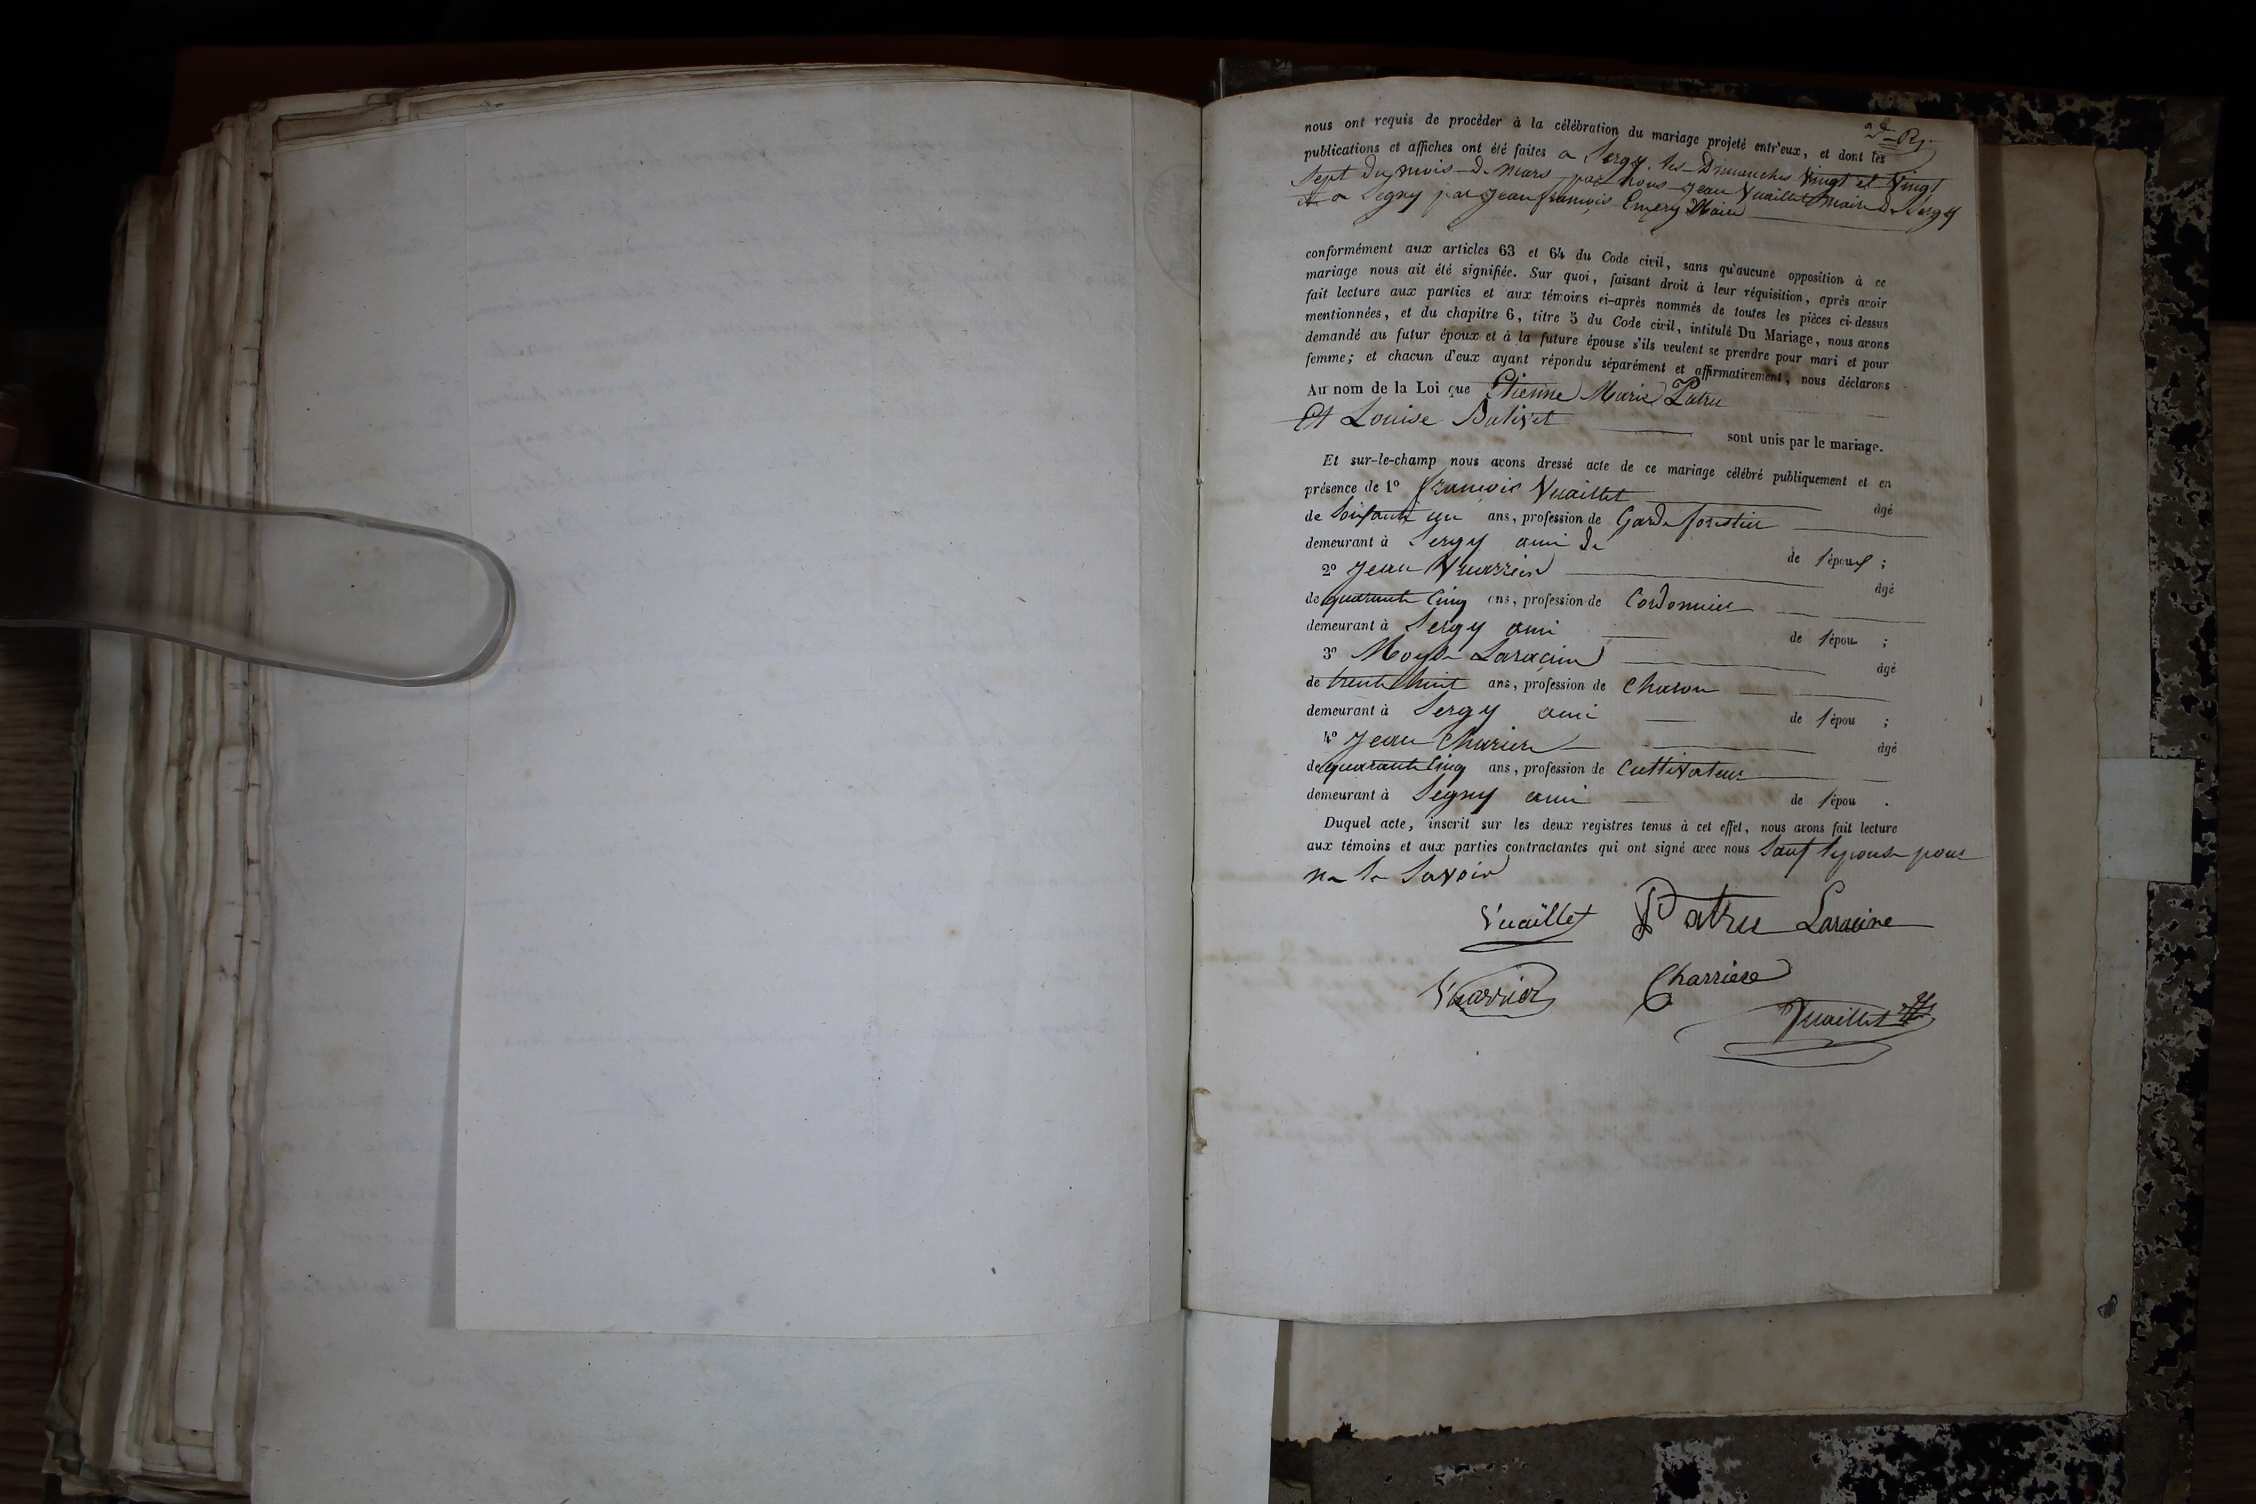 2d. Rg.
nous ont requis de procéder à la célébration du mariage projeté entr'eux, et dont les
publications et affiches ont été faites a Sergy les Dimanches Vingt et Vingt
Sept du mois de mars par nous Jean Vuaillet Maire de Sergy
et a Segny par Jean françois Emery Maire
conformément aux articles 63 et 64 du Code civil, sans qu'aucune opposition à ce
mariage nous ait été signifiée. Sur quoi, faisant droit à leur réquisition, après avoir
fait lecture aux parties et aux témoins ci-après nommés de toutes les pièces ci-dessus
mentionnées, et du chapitre 6, titre 5 du Code civil, intitulé Du Mariage, nous avons
demandé au futur époux et à la future épouse s'ils veulent se prendre pour mari et pour
femme; et chacun d'eux ayant répondu séparément et affirmativement, nous déclarons
Au nom de la Loi que Etienne Marie Patru
Et Louise Batiset
sont unis par le mariage.
Et sur-le-champ nous avons dressé acte de ce mariage célébré publiquement et en
présence de 1º françois Vuaillet âgé
de Soixante un ans, profession de Garde forestier
demeurant à Sergy ami de de l'époux ;
2º Jean Vuarrier âgé
de quarante Cinq ans, profession de Cordonnier
demeurant à Sergy ami de l'épou ;
3º Moyse Laracine âgé
de trente huit ans, profession de Charon
demeurant à Sergy ami de l'épou ;
4º Jean Chariere âgé
de quarante Cinq ans, profession de Cultivateur
demeurant à Segny ami de l'épou .
Duquel acte, inscrit sur les deux registres tenus à cet effet, nous avons fait lecture
aux témoins et aux parties contractantes qui ont signé avec nous Sauf lepouse pour
ne le Savoir
Vuaillet Patru Laracine
Vuarrier Charriere
Vuaillet